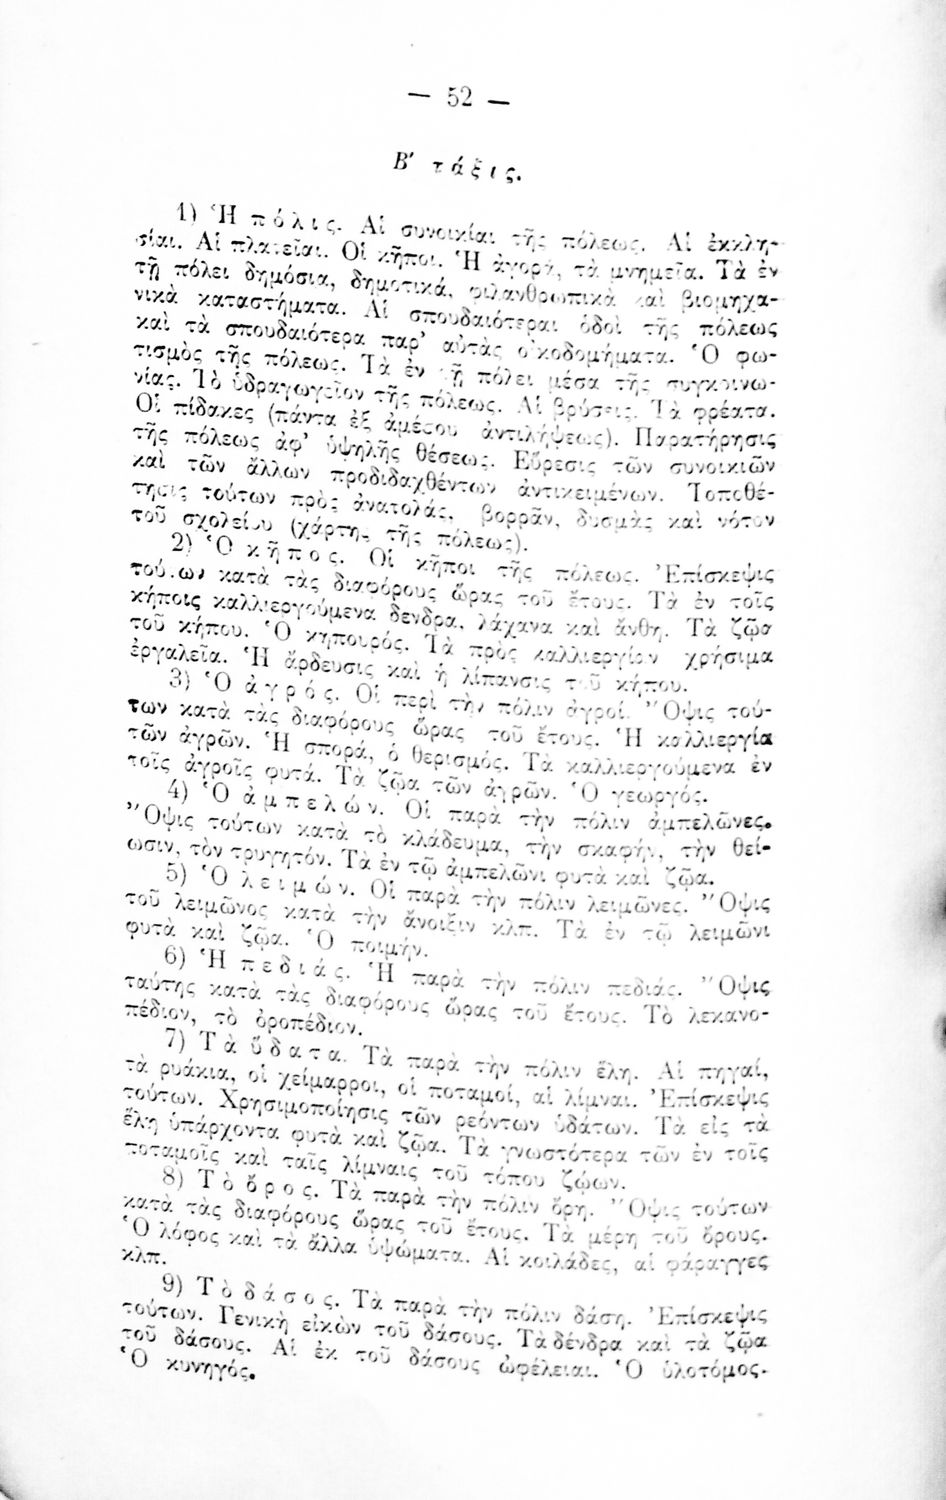 — 52 —
Β' τάξις.
1) Ἡ πόλις. Αἱ συνοικίαι τῆς πόλεως. Αἱ ἐκκλη-
σίαι. Αἱ πλατεῖαι. Οἱ κῆποι. Ἡ ἀγορά, τὰ μνημεῖα. Τὰ ἐν
τῇ πόλει δημόσια, δημοτικά, φιλανθρωπικὰ καὶ βιομηχα-
νικὰ καταστήματα. Αἱ σπουδαιότεραι ὁδοὶ τῆς πόλεως
καὶ τὰ σπουδαιότερα παρ' αὐτὰς οἰκοδομήματα. Ὁ φω-
τισμὸς τῆς πόλεως. Τὰ ἐν τῇ πόλει μέσα τῆς συγκοινω-
νίας. Τὸ ὑδραγωγεῖον τῆς πόλεως. Αἱ βρύσεις. Τὰ φρέατα.
Οἱ πίδακες (πάντα ἐξ ἀμέσου ἀντιλήψεως). Παρατήρησις
τῆς πόλεως ἀφ' ὑψηλῆς θέσεως. Εὕρεσις τῶν συνοικιῶν
καὶ τῶν ἄλλων προδιδαχθέντων ἀντικειμένων. Τοποθέ-
τησις τούτων πρὸς ἀνατολάς, βορρᾶν, δυσμὰς καὶ νότον
τοῦ σχολείου (χάρτης τῆς πόλεως).
2) Ὁ κῆπος. Οἱ κῆποι τῆς πόλεως. Ἐπίσκεψις
τούτων κατὰ τὰς διαφόρους ὥρας τοῦ ἔτους. Τὰ ἐν τοῖς
κήποις καλλιεργούμενα δένδρα, λάχανα καὶ ἄνθη. Τὰ ζῷα
τοῦ κήπου. Ὁ κηπουρός. Τὰ πρὸς καλλιεργίαν χρήσιμα
ἐργαλεῖα. Ἡ ἄρδευσις καὶ ἡ λίπανσις τοῦ κήπου.
3) Ὁ ἀγρός. Οἱ περὶ τὴν πόλιν ἀγροί. Ὄψις τού-
των κατὰ τὰς διαφόρους ὥρας τοῦ ἔτους. Ἡ καλλιεργία
τῶν ἀγρῶν. Ἡ σπορά, ὁ θερισμός. Τὰ καλλιεργούμενα ἐν
τοῖς ἀγροῖς φυτά. Τὰ ζῷα τῶν ἀγρῶν. Ὁ γεωργός.
4) Ὁ ἀμπελών. Οἱ παρὰ τὴν πόλιν ἀμπελῶνες.
Ὄψις τούτων κατὰ τὸ κλάδευμα, τὴν σκαφήν, τὴν θεί-
ωσιν, τὸν τρυγητόν. Τὰ ἐν τῷ ἀμπελῶνι φυτὰ καὶ ζῷα.
5) Ὁ λειμών. Οἱ παρὰ τὴν πόλιν λειμῶνες. Ὄψις
τοῦ λειμῶνος κατὰ τὴν ἄνοιξιν κλπ. Τὰ ἐν τῷ λειμῶνι
φυτὰ καὶ ζῷα. Ὁ ποιμήν.
6) Ἡ πεδιάς. Ἡ παρὰ τὴν πόλιν πεδιάς. Ὄψις
ταύτης κατὰ τὰς διαφόρους ὥρας τοῦ ἔτους. Τὸ λεκανο-
πέδιον, τὸ ὀροπέδιον.
7) Τὰ ὕδατα. Τὰ παρὰ τὴν πόλιν ἕλη. Αἱ πηγαί,
τὰ ρυάκια, οἱ χείμαρροι, οἱ ποταμοί, αἱ λίμναι. Ἐπίσκεψις
τούτων. Χρησιμοποίησις τῶν ρεόντων ὑδάτων. Τὰ εἰς τὰ
ἕλη ὑπάρχοντα φυτὰ καὶ ζῷα. Τὰ γνωστότερα τῶν ἐν τοῖς
ποταμοῖς καὶ ταῖς λίμναις τοῦ τόπου ζῴων.
8) Τὸ ὄρος. Τὰ παρὰ τὴν πόλιν ὄρη. Ὄψις τούτων
κατὰ τὰς διαφόρους ὥρας τοῦ ἔτους. Τὰ μέρη τοῦ ὄρους.
Ὁ λόφος καὶ τὰ ἄλλα ὑψώματα. Αἱ κοιλάδες, αἱ φάραγγες
κλπ.
9) Τὸ δάσος. Τὰ παρὰ τὴν πόλιν δάση. Ἐπίσκεψις
τούτων. Γενικὴ εἰκὼν τοῦ δάσους. Τὰ δένδρα καὶ τὰ ζῷα
τοῦ δάσους. Αἱ ἐκ τοῦ δάσους ὠφέλειαι. Ὁ ὑλοτόμος.
Ὁ κυνηγός.